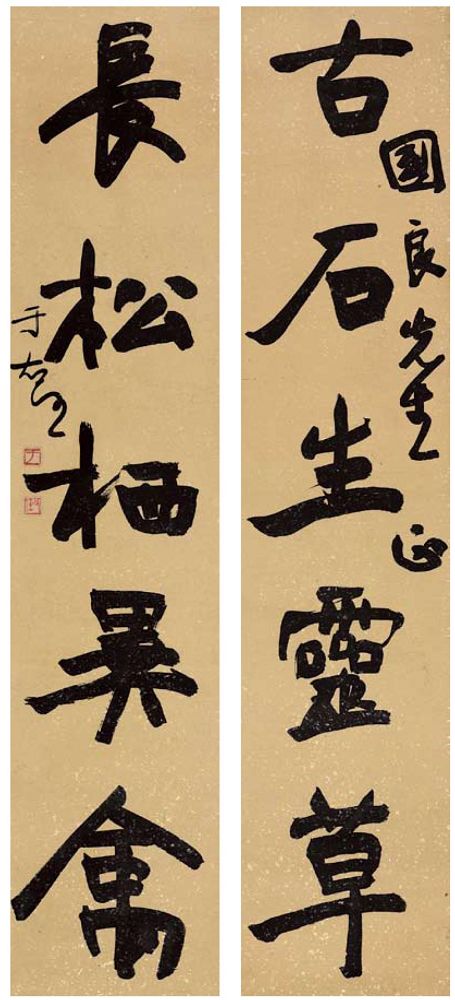 古石生靈草
國良先生正
長松栖異禽
于右任